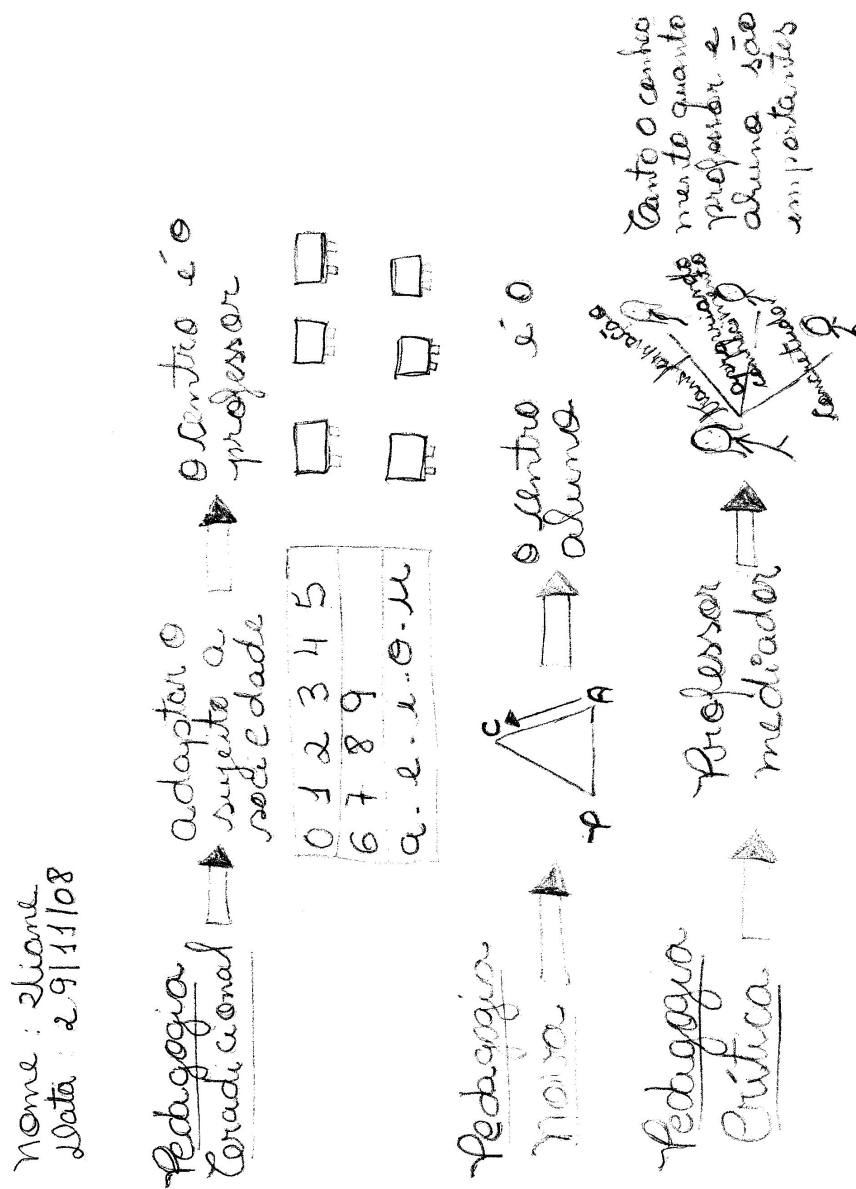 Nome : Eliane
Data : 29/11/08
Pedagogia
Tradicional
adaptar o
sujeito a
sociedade
o centro é o
professor
0 1 2 3 4 5
6 7 8 9
a - e - i - o - u
Pedagogia
Nova
C
P
A
o centro é o
aluno
Pedagogia
Crítica
Professor
mediador
transformação
apropriando
conhecimento
construindo
Tanto o conhe
mento quanto
professor e
aluno são
importantes